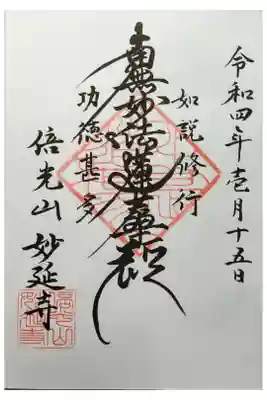 令和四年壱月十五日
如説修行
南無妙法蓮華経
功徳甚多
倍光山 妙延寺